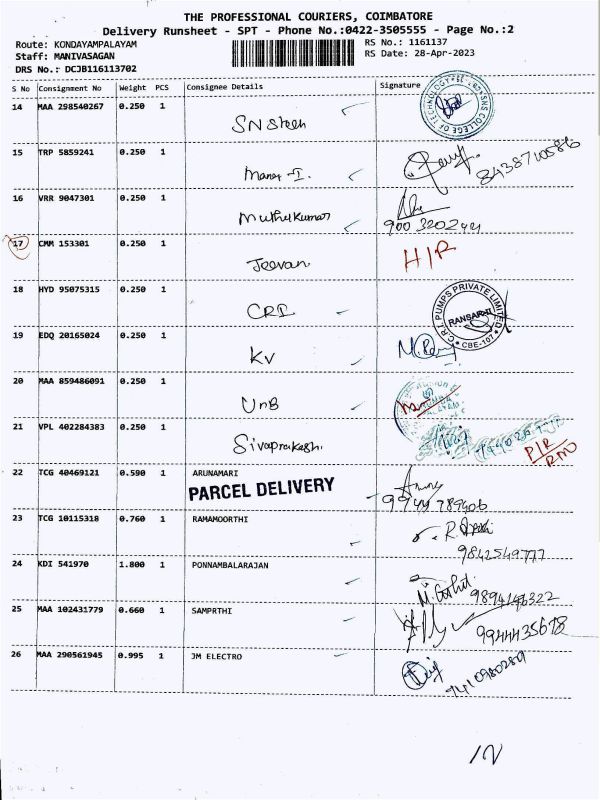 THE PROFESSIONAL COURIERS, COIMBATORE
Delivery Runsheet - SPT - Phone No.:0422-3505555 - Page No.:2
Route: KONDAYAMPALAYAM RS No.: 1161137
Staff: MANIVASAGAN RS Date: 28-Apr-2023
DRS No.: DCJB116113702
S No Consignment No Weight PCS Consignee Details Signature
14 MAA 298540267 0.250 1
SNS COLLEGE OF TECHNOLOGY
15 TRP 5859241 0.250 1
8438710586
16 VRR 9047301 0.250 1 Muthukumar
17 CMM 153301 0.250 1 Jeevan
18 HYD 95075315 0.250 1 CRI
C.R.I. PUMPS PRIVATE LIMITED
CBE-107
19 EDQ 20165024 0.250 1 KV
20 MAA 859486091 0.250 1
21 VPL 402284383 0.250 1 Sivaprakash
22 TCG 40469121 0.590 1 ARUNAMARI
PARCEL DELIVERY
23 TCG 10115318 0.760 1 RAMAMOORTHI
9842549777
24 KDI 541970 1.800 1 PONNAMBALARAJAN
25 MAA 102431779 0.660 1 SAMPRTHI
9944435678
26 MAA 290561945 0.995 1 JM ELECTRO
7410980289